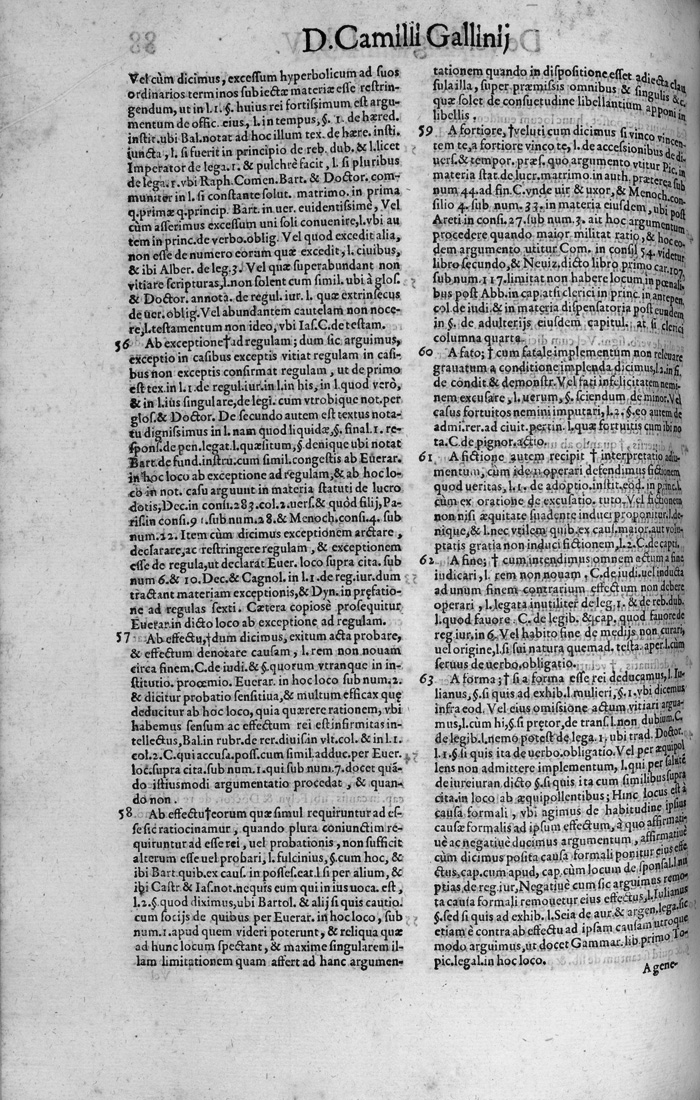 D. Camilli Gallinij
Vel cùm dicimus, excessum hyperbolicum ad suos
ordinarios terminos subiectæ materiæ esse restrin-
gendum, ut in l. 1. §. huius rei fortissimum est argu-
mentum de offic. eius, l. in tempus, §. 1. de hæred.
instit. ubi Bal. notat ad hoc illum tex. de hære. insti.
iuncta, l. si fuerit in principio de reb. dub. & l. licet
Imperator de lega. 1. & pulchrè facit, l. si pluribus
de lega. 1. vbi Raph. Comen. Bart. & Doctor. com-
muniter in l. si constante solut. matrimo. in prima
q. primæ q. princip. Bart. in uer. euidentissimè, Vel
cùm asserimus excessum uni soli conuenire, l. vbi au
tem in princ. de verbo. oblig. Vel quod excedit alia,
non esse de numero eorum quæ excedit, l. ciuibus,
& ibi Alber. de leg. 3. Vel quæ superabundant non
vitiare scripturas, l. non solent cum simil. ubi à glos.
& Doctor. annota. de regul. iur. l. quæ extrinsecus
de uer. oblig. Vel abundantem cautelam non noce-
re, l. testamentum non ideo, vbi Ias. C. de testam.
56 Ab exceptione † ad regulam; dum sic arguimus,
exceptio in casibus exceptis vitiat regulam in casi-
bus non exceptis confirmat regulam, ut de primo
est tex. in l. 1. de regul. iur. in l. in his, in l. quod verò,
& in l. ius singulare, de legi. cum vtrobique not. per
glos. & Doctor. De secundo autem est textus nota-
tu dignissimus in l. nam quod liquidæ, §. final. l. re-
spons. de pen. legat. l. quæsitum, § denique ubi notat
Bart. de fund. instru. cum simil. congestis ab Euerar.
in hoc loco ab exceptione ad regulam, & ab hoc lo-
co in not. casu arguunt in materia statuti de lucro
dotis, Dec. in cons. 283. col. 2. uers. & quòd filij, Pa-
ris. in consi. 91. sub num. 28. & Menoch. consi. 4. sub
num. 22. Item cùm dicimus exceptionem arctare,
declarare, ac restringere regulam, & exceptionem
esse de regula, ut declarat Euer. loco supra cita. sub
num 6. & 10. Dec. & Cagnol. in l. 1. de reg. iur. dum
tractant materiam exceptionis, & Dyn. in præfatio-
ne ad regulas sexti. Cætera copiosè prosequitur
Euerar. in dicto loco ab exceptione ad regulam.
57 Ab effectu, † dum dicimus, exitum acta probare,
& effectum denotare causam, l. rem non nouam
circa finem. C. de iudi. & §. quorum vtranque in in-
stitutio. proœmio. Euerar. in hoc loco sub num. 2.
& dicitur probatio sensitiua, & multum efficax quę
deducitur ab hoc loco, quia quærere rationem, vbi
habemus sensum ac effectum rei est infirmitas in-
tellectus, Bal. in rubr. de rer. diuis. in vlt. col. & in l. 1.
col. 2. C. qui accusa. poss. cum simil. adduc. per Euer.
loc. supra cita. sub num. 1. qui sub num. 7. docet quā-
do istiusmodi argumentatio procedat, & quan-
do non.
58 Ab effectu † eorum quæ simul requiruntur ad es-
se sic ratiocinamur, quando plura coniunctim re-
quiruntur ad esse rei, uel probationis, non sufficit
alterum esse uel probari, l. fulcinius, §. cum hoc, &
ibi Bart. quib. ex caus. in posses. eat. l. si per alium, &
ibi Castr & Ias. not. nequis eum qui in ius uoca. est,
l. 2. §. quod diximus, ubi Bartol. & alij si quis cautio.
cum socijs de quibus per Euerar. in hoc loco, sub
num. 1. apud quem videri poterunt, & reliqua quæ
ad hunc locum spectant, & maxime singularem il-
lam limitationem quam affert ad hanc argumen-
tationem quando in dispositione esset adiecta clau
sula illa, super præmissis omnibus & singulis &c.
quæ solet de consuetudine libellantium apponi in
libellis.
59 A fortiore, † veluti cum dicimus si vinco vincen-
tem te, a fortiore vinco te, l. de accessionibus de di-
uers. & tempor. præs. quo argumento vtitur Pic. in
materia stat. de lucr. matrimo. in auth. præterea sub
num 44. ad fin. C. vnde uir & uxor, & Menoch. con-
silio 4. sub num. 33. in materia eiusdem, ubi post
Areti in consi. 27. sub num. 3. ait hoc argumentum
procedere quando maior militat ratio, & hoc eo-
dem argumento utitur Com. in consil 54. videtur
libro secundo, & Neuiz. dicto libro primo car. 107.
sub num. 117. limitat non habere locum in pœnali-
bus post Abb. in cap. at si clerici in princ. in antepen.
col. de iudi & in materia dispensatoria post eundem
in §. de adulterijs eiusdem capitul. at si clerici
columna quarta.
60 A fato; † cum fatale implementum non releuare
grauatum a conditione implenda dicimus, l. 2. in fi.
de condit & demonstr. Vel fati infelicitatem nemi-
nem excusare, l. uerum, §. sciendum de minor. Vel
casus fortuitos nemini imputari, l. 2. §. eo autem de
admi. rer. ad ciuit. pertin. l. quæ fortuitis cum ibi no
ta. C. de pignor. actio.
61 A fictione autem recipit † interpretatio adiu-
mentum, cùm idem operari defendimus fictionem
quod ueritas, l. 1. de adoptio. instit. eod. in princ. l.
cùm ex oratione de excusatio. tuto. Vel fictionem
non nisi æquitate suadente induci proponitur, l. de-
nique, & l. nec vtilem quib. ex caus. maior. aut volu-
ptatis gratia non induci fictionem, l. 2. C. de capti.
62 A fine; † cum intendimus omnem actum a fine
iudicari, l. rem non nouam, C. de iudi. uel inducta
ad unum finem contrarium effectum non debere
operari, l. legata inutiliter de leg. 1. & de reb. dub.
l. quod fauore C. de legib. & cap. quod fauore de
reg iur. in 6. Vel habito fine de medijs non curari,
uel origine, l. si sui natura quemad. testa. aper. l. cum
seruus de uerbo. obligatio.
63 A forma; † si a forma esse rei deducamus, l. Iu-
lianus, §. si quis ad exhib. l. mulieri, §. 1. vbi dicemus
infra eod. Vel eius omissione actum vitiari argua-
mus, l. cùm hi, §. si prętor, de trans. l. non dubium, C.
de legib. l. nemo potest de lega. 1. ubi trad. Doctor.
l. 1. § si quis ita de uerbo. obligatio. Vel per æquipol
lens non admittere implementum, l. qui per salutē
de iureiuran. dicto §. si quis ita cum similibus supra
cita. in loco ab æquipollentibus; Hinc locus est à
causa formali, vbi agimus de habitudine ipsius
causæ formalis ad ipsum effectum, à quo affirmati-
uè ac negatiuè ducimus argumentum, affirmatiuè
cùm dicimus posita causa formali ponitur eius effe-
ctus, cap. cum apud, cap. cùm locum de sponsal. l. nu
ptias, de reg. iur, Negatiuè cum sic arguimus remo-
ta causa formali remouetur eius effectus, l. Iulianus
§. sed si quis ad exhib. l. Seia de aur. & argen. lega. sic
etiam è contra ab effectu ad ipsam causam utroque
modo arguimus, ut docet Gammar. lib. primo To-
pic. legal. in hoc loco.
A gene-